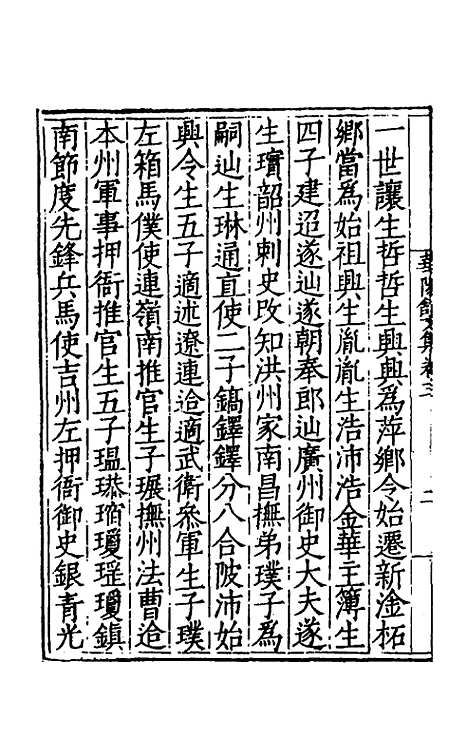 華陽館文集卷三 二
一世讓生哲哲生興興爲萍鄉令始遷新淦柘
鄉當爲始祖興生胤胤生浩沛浩金華主簿生
四子建迢遂辿遂朝奉郎辿廣州御史大夫遂
生璸韶州刺史攺知洪州家南昌撫弟璞子爲
嗣辿生琳通直使二子鎬鐸鐸分八合陂沛始
興令生五子適述遼連迨適武衛叅軍生子璞
左箱馬僕使連嶺南推官生子珢撫州法曹迨
本州軍事押衙推官生五子瑥㻡瑎瓊瑶瓊鎮
南節度先鋒兵馬使吉州左押衙御史銀青光